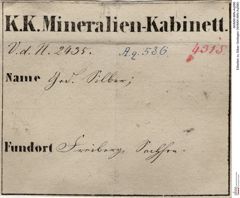 K.K.Mineralien-Kabinett.
V.d.N. 2435. A.q. 586 4315
Name Ged. Silber;
Fundort Freiberg, Sachsen.